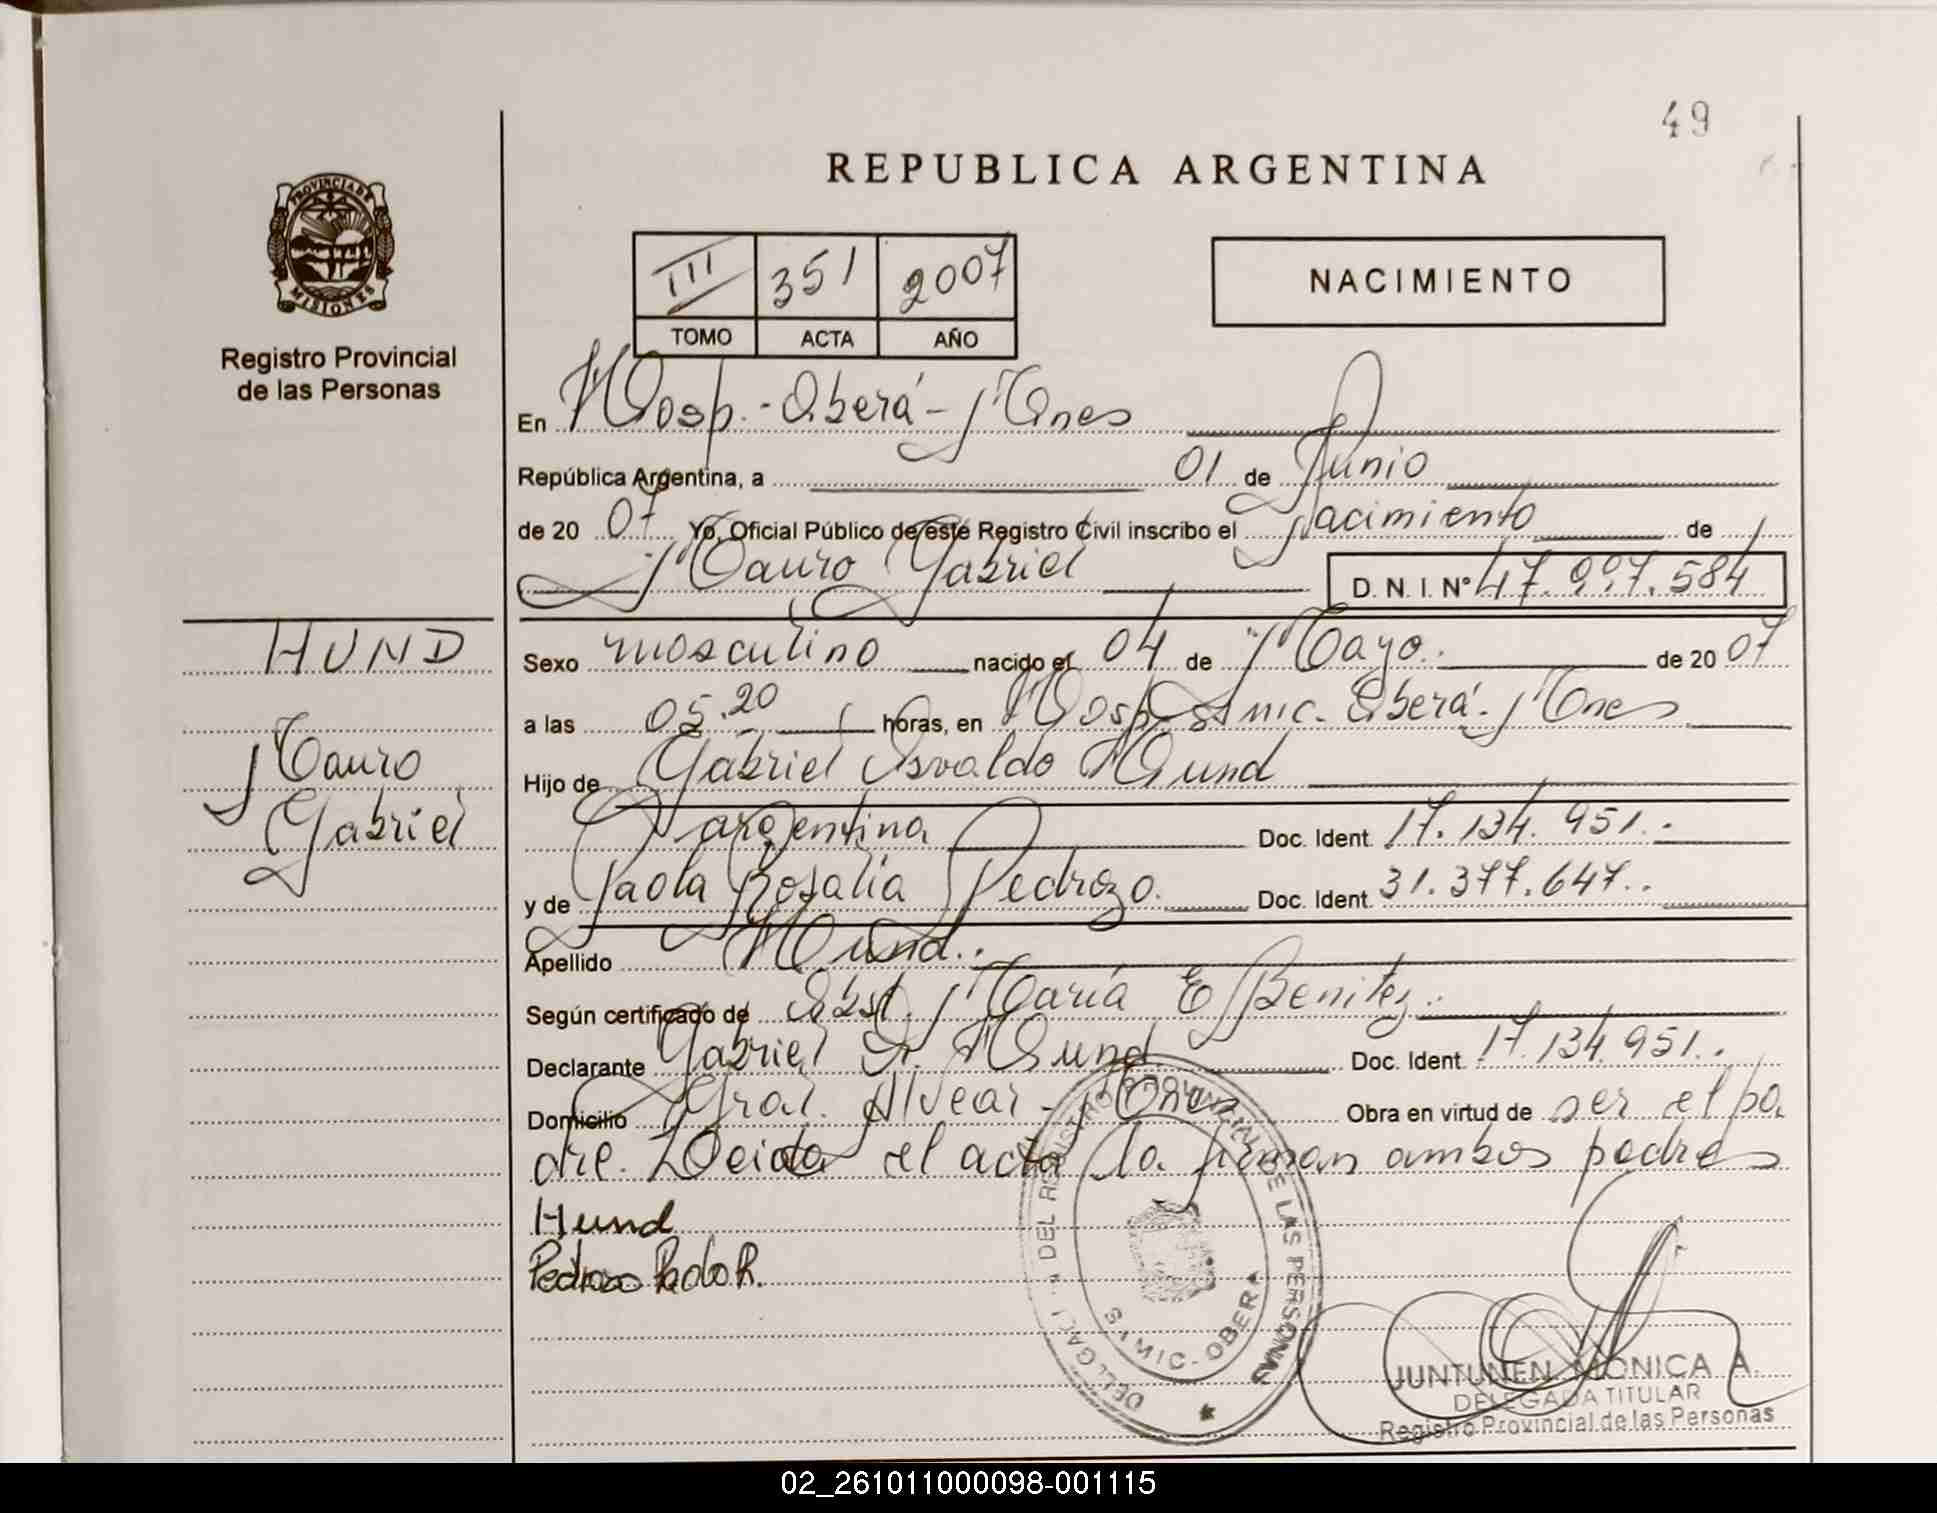 49
REPUBLICA ARGENTINA
PROVINCIA DE
MISIONES
Registro Provincial
de las Personas
III 351 2007
TOMO ACTA AÑO
NACIMIENTO
En Hosp.- Oberá - Mnes
República Argentina, a 01 de Junio
de 20 07 Yo, Oficial Público de este Registro Civil inscribo el Nacimiento de
Mauro Gabriel D. N. I. Nº 47.997.584
HUND
Mauro
Gabriel
Sexo masculino nacido el 04 de Mayo. de 20 07
a las 05.20 horas, en Hosp. Samic. Oberá. Mnes
Hijo de Gabriel Osvaldo Hund
argentina Doc. Ident. 17.134.951.
y de Paola Rosalia Pedrozo. Doc. Ident. 31.377.647.
Apellido Hund.
Según certificado de Obst. María E Benitez.
Declarante Gabriel O. Hund Doc. Ident. 17.134.951.
Domicilio Gral. Alvear - Mnes Obra en virtud de ser el pa
dre. Leida el acta la firman ambos padres
Hund
Pedrozo Paola R.
DEL REGISTRO PROVINCIAL DE LAS PERSONAS
SAMIC - OBERA
JUNTUNEN MONICA A.
DELEGADA TITULAR
Registro Provincial de las Personas
02_261011000098-001115